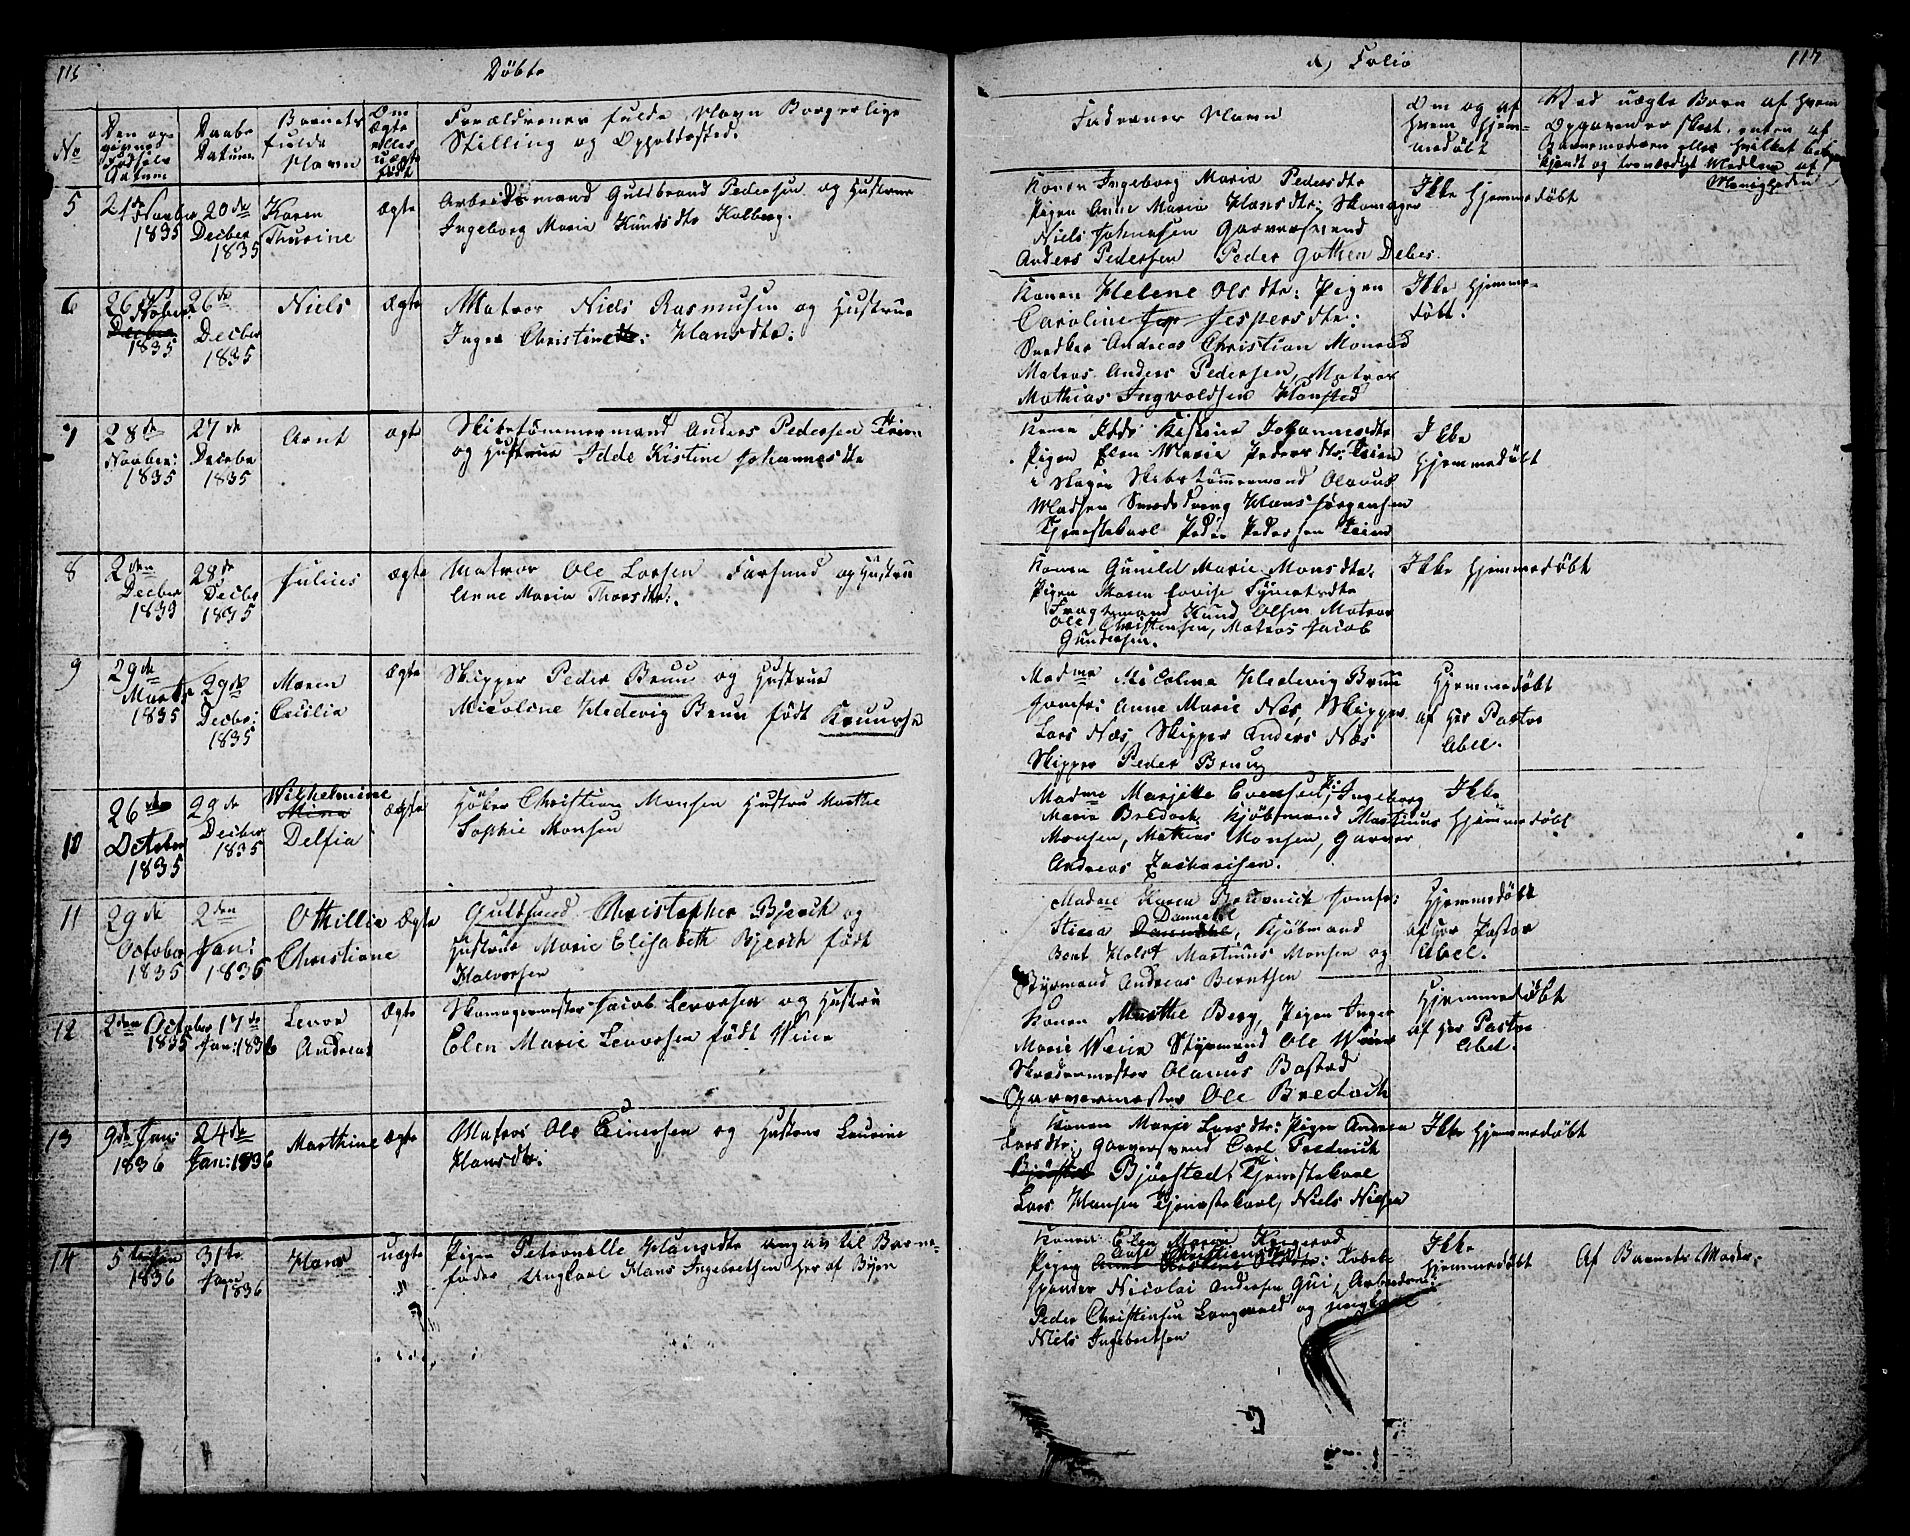 116 Döbte
No
Den op-
givne
Fødsels
Datum
Daabs
Datum
Barnets
fulde
Navn
Om
Ægte
elles
uægte
født
Forældrenes fulde Navn Borgerlige
Stilling og Opholdssted.
5
21de Novber
1835
20de
Decber
1835
Karen
Thurine
ægte
Arbeidsmand Guldbrand Pedersen og Hustrue
Ingeborg Maria Knudsdtr Kolberg.
6
26de Novber
1835
26de
Decber
1835
Niels
Ægte
Matros Niels Rasmusen og Hustrue
Inger Christine Hansdtr:
7
28de
Novber:
1835
27de
Decebr
1835
Arnt
ægte
Skibstømmermand Anders Pedersen Teien
og Hustrue Idde Kistine Johannesdtr
8
2den
Decber
1835
28de
Decbr
1835
Julius
Ægte
Matros Ole Larsen Farsund og Hustru
Anne Maria Thorsdtr:.
9
29de
Marts
1835
29de
Decbr:
1835
Maren
Cecilia
Ægte
Skipper Peder Bruu og Hustrue
Nicoline Hedevig Bruu født
10
26de
October
1835
29de
Decber
1835
Wilhelmine
Mina
Delfia
ægte
Höker Christian Monsen Hustru Marthe
Sophie Monsen
11
29de
October
1835
2den
Jan:
1836
Othillia
Christiane
Ægte
Guldsmed Christopher Bjerch og
Hustrue Marie Elisabeth Bjerch født
Halvorsen
12
2den October
1835
17de
Jan: 1836
Levor
Andreas
Ægte
Skomagermester Jacob Levorsen og Hustru
Elen Marie Levorsen født Weie
13
9de Jan:
1836
24de
Jan: 1836
Marthine
Ægte
Matros Ole Einersen og Hustrue Laurine
Hansdtr:
14
5te Jan
1836
31te
Jan
1836
Hans
uægte
Pigen Petronelle Hansdtr angav til Barne-
fader Ungkarl Hans Ingebretsen her af Byen
d) Folio 117
Faderner Navn
Om og af
hvem hjem-
medøbt
Ved uægte Børn af hvem
Opgaven er skeet, enten af
Barnemoderen eller hvilket be-
kjendt og troværdigt Medlem af
Menigheden
Konen Ingeborg Maria Pedersdtr
Pigen Anne Maria Hansdtr; Skomager
Niels Johnesen Garversvend
Anders Pedersen Peder Gotken Debes.
Ikke Hjemmedøbt
Konen Helene Olsdtr: Pigen
Caroline Jespersdtr:
Snedker Andreas Christian Monrad
Matros Anders Pedersen, Matros
Mathias Ingvoldsen Hansted
Ikke Hjemme-
døbt.
Konen Idde Kistine Johannesdtr
Pigen Elen Maria Pedersdtr: Teien
i Skogen Skibstømmermand Olavus
Madsen Smedsdreng Hans Jørgensen
Tjenestekarl Peder Pedersen Teien
Ikke
Hjemmedøbt
Konen Gunild Marie Monsdtr.
Pigen Maren Lovise
Fragtemand Knud Olsen Matros
Ole Christensen, Matros Jacob
Gundersen.
Ikke Hjemmedøbt
Madme Nicolina Hedevig Bruu
Jomfr: Anne Marie Næs, Skipper
Lars Næs, Skipper Anders Næs
Skipper Peder Bruu
Hjemmedøbt
af Hr Pastor
Abel.
Madme Marjette Evensen, Pi: Ingeborg
Maria Bredoch: Kjøbmand Martinus
Monsen, Mathias Monsen, Garver
Andreas Zachariasen.
Ikke
Hjemmedøbt
Madme Karen Jomfr:
Stina Dannehl, Kjøbmand
Bent Holst Martinus Monsen og
Styrmand Andreas Berntsen
Hjemmedøbt
af Hr Pastor
Abel.
Konen Marthe Berg, Pigen Inger
Marie Weie Styrmand Ole Weie
Skrædermester Olauus Bastad
Garvermester Ole Bredoch
Hjemmedøbt
af Hr Pastor
Abel.
Konen Marie Larsdtr: Pigen Andrea
Larsdtr; Garversvend Carl Frederich
Bjørsted Bjørsted, Tjenestekarl
Lars Hansen Tjenestekarl, Niels Nielsen
Ikke Hjemmedøbt
Konen Elen Maria
Anne Christiansdtr
Pigen
Nicolai Andersen Gui, Arbeidsm:
Peder Christensen Langevold og ungkarl
Niels Ingebretsen
Ikke
Hjemmedøbt
Af Barnets Moder